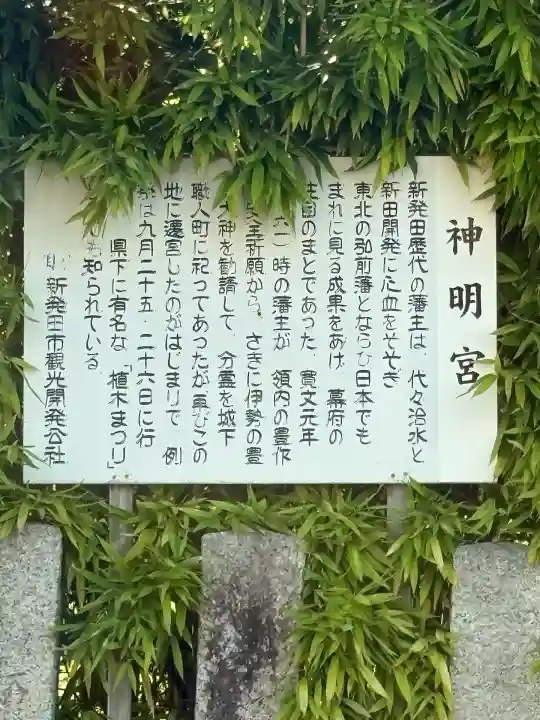 神明宮
新発田歴代の藩主は、代々治水と
新田開発に心血をそそぎ
東北の弘前藩とならび日本でも
まれに見る成果をあげ、幕府の
のまとであった。寛文元年
時の藩主が、領内の豊作
祈願から、さきに伊勢の豊
大神を勧請して、分霊を城下
職人町に祀ってあったが再びこの
地に遷宮したのがはじまりで、例
は九月二十五・二十六日に行
県下に有名な「植木まつり」
も知られている。
新発田市観光開発公社